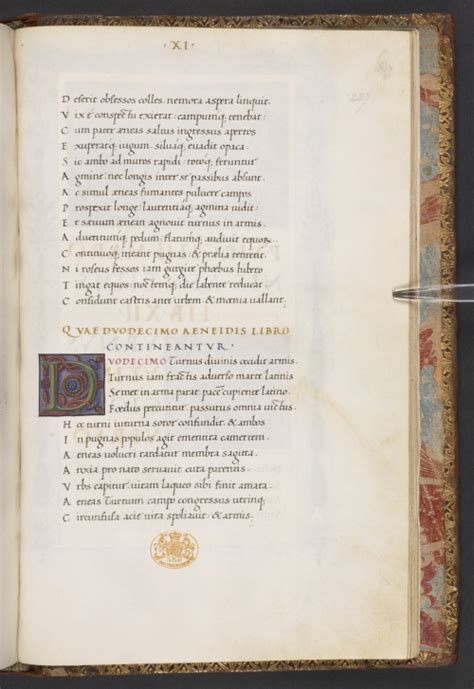 · XI ·
D eserit obsessos colles. nemora aspera linquit.
V ix e conspectu exierat. campumq; tenebat:
C um pater æneas saltus ingressus apertos
E xuperatq; iugum. siluaq; euadit opaca.
S ic ambo ad muros rapidi. totoq; feruntur
A gmine. nec longis inter se passibus absunt.
A c simul æneas fumantes puluere campos
P rospexit longe. laurentiaq; agmina uidit:
E t sæuum ænean agnouit turnus in armis.
A duentumq; pedum. flatumq; audiuit equor.
C ontinuoq; ineant pugnas. & prælia tentent.
N i roseus fessos iam gurgite phœbus hibero
T ingat equos. noctemq; die labente reducat.
C onsidunt castris ante urbem. & mœnia uallant.
QVAE DVODECIMO AENEIDIS LIBRO
CONTINEANTVR ·
DVODECIMO Turnus diuinis occidit armis.
Turnus iam fractis aduerso marte latinis
Semet in arma parat. pacem cupiente latino.
Fœdus percutitur. passurus omnia uictus.
H æc turni iuturna soror confundit. & ambos
I n pugnas populos agit ementita camertem.
A eneas uolucri tardatur membra sagitta.
A nxia pro nato seruauit cura parentis.
V rbs capitur. uitam laqueo sibi finit amata.
A eneas Turnum campo congressus utrinq;
C ircunfusa acie. uita spoliauit. & armis.